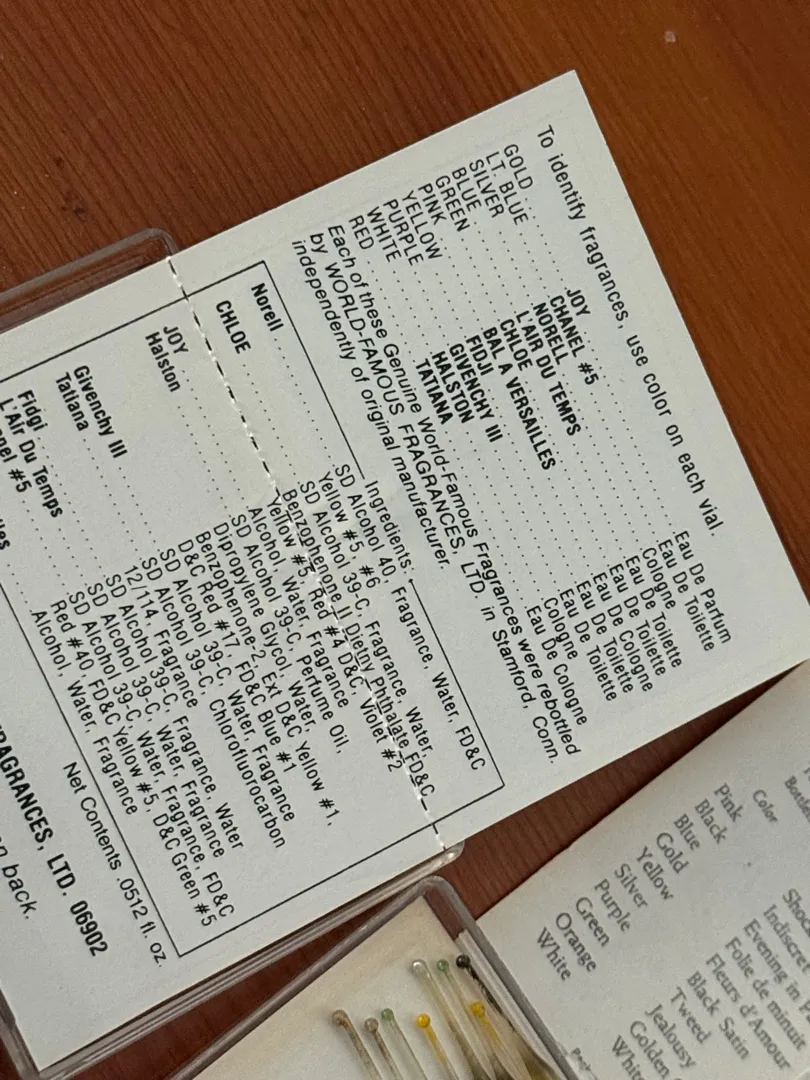 To identify fragrances, use color on each vial.
GOLD JOY Eau De Parfum
LT. BLUE CHANEL #5 Eau De Toilette
SILVER NORELL Cologne
BLUE L'AIR DU TEMPS Eau De Toilette
GREEN CHLOE Eau De Toilette
PINK BAL A VERSAILLES Eau De Cologne
YELLOW FIDJI Eau De Toilette
PURPLE GIVENCHY III Eau De Toilette
WHITE HALSTON Cologne
RED TATIANA Eau De Cologne
Each of these Genuine World-Famous Fragrances were rebottled
by WORLD-FAMOUS FRAGRANCES, LTD. in Stamford, Conn.
independently of original manufacturer.
Ingredients:
Norell SD Alcohol 40, Fragrance, Water, FD&C
Yellow #5, #6
CHLOE SD Alcohol 39-C, Fragrance, Water,
Benzophenone II Diethy Phthalate FD&C
Yellow #5, Red #4 D&C, Violet #2
JOY Alcohol, Water, Fragrance
Halston SD Alcohol 39-C, Perfume Oil,
Dipropylene Glycol, Water,
Benzophenone-2, Ext D&C Yellow #1,
D&C Red #17, FD&C Blue #1
Givenchy III SD Alcohol 39-C, Water, Fragrance
Tatiana SD Alcohol 39-C, Chlorofluorocarbon
12/114, Fragrance
Fidgi SD Alcohol 39-C, Fragrance, Water
L'Air Du Temps SD Alcohol 39-C, Water, Fragrance
#5 SD Alcohol 39-C, Water, Fragrance, FD&C
Red #40, FD&C Yellow #5, D&C Green #5
Alcohol, Water, Fragrance
Net Contents .0512 fl. oz.
FRAGRANCES, LTD. 06902
back.
Color
Pink
Black Indiscre
Blue Evening in
Gold Folie de minuit
Yellow Fleurs d'Amour
Silver Black Satin
Purple Tweed
Green Jealousy
Orange Golden
White